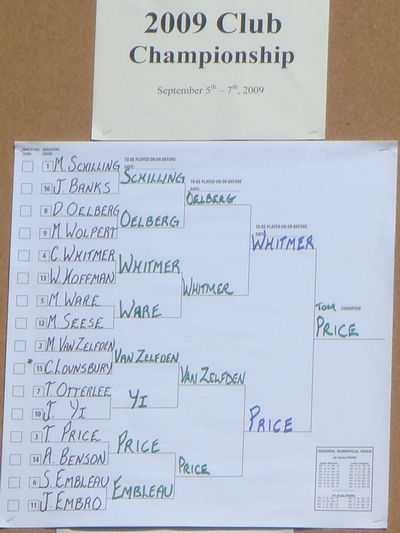 2009 Club
Championship
September 5th – 7th, 2009
TO BE PLAYED ON OR BEFORE
DATE:
TO BE PLAYED ON OR BEFORE
DATE:
TO BE PLAYED ON OR BEFORE
DATE:
1 M. SCHILLING
16 J. BANKS
8 D. OELBERG
9 M. WOLPERT
4 C. WHITMER
13 W. HOFFMAN
5 M. WARE
12 M. SEESE
2 M. VAN ZELFDEN
* 15 C. LOUNSBURY
7 T. OTTERLEE
10 J. YI
3 T. PRICE
14 A. BENSON
6 S. EMBLEAU
11 J. EMBRO
SCHILLING
OELBERG
WHITMER
WARE
VAN ZELFDEN
YI
PRICE
EMBLEAU
OELBERG
WHITMER
VAN ZELFDEN
PRICE
WHITMER
PRICE
TOM CHAMPION
PRICE
GENERAL NUMERICAL DRAW